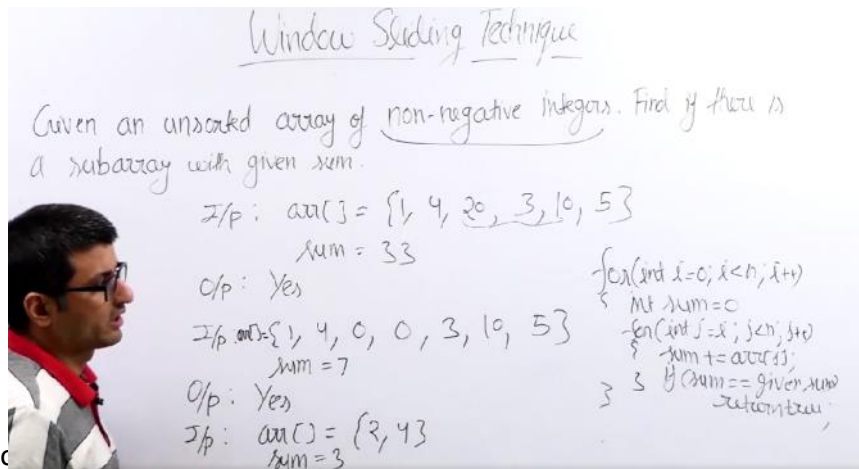 Window Sliding Technique
Given an unsorted array of non-negative integers. Find if there is
a subarray with given sum.
I/p : arr[] = {1, 4, 20, 3, 10, 5}
sum = 33
O/p : Yes
I/p arr[]={1, 4, 0, 0, 3, 10, 5}
sum = 7
O/p : Yes
I/p : arr[] = {2, 4}
sum = 3
for(int i=0; i<n; i++)
{ int sum=0
for(int j=i; j<n; j++)
{ sum += arr[j];
} if (sum == given sum)
return true;
}